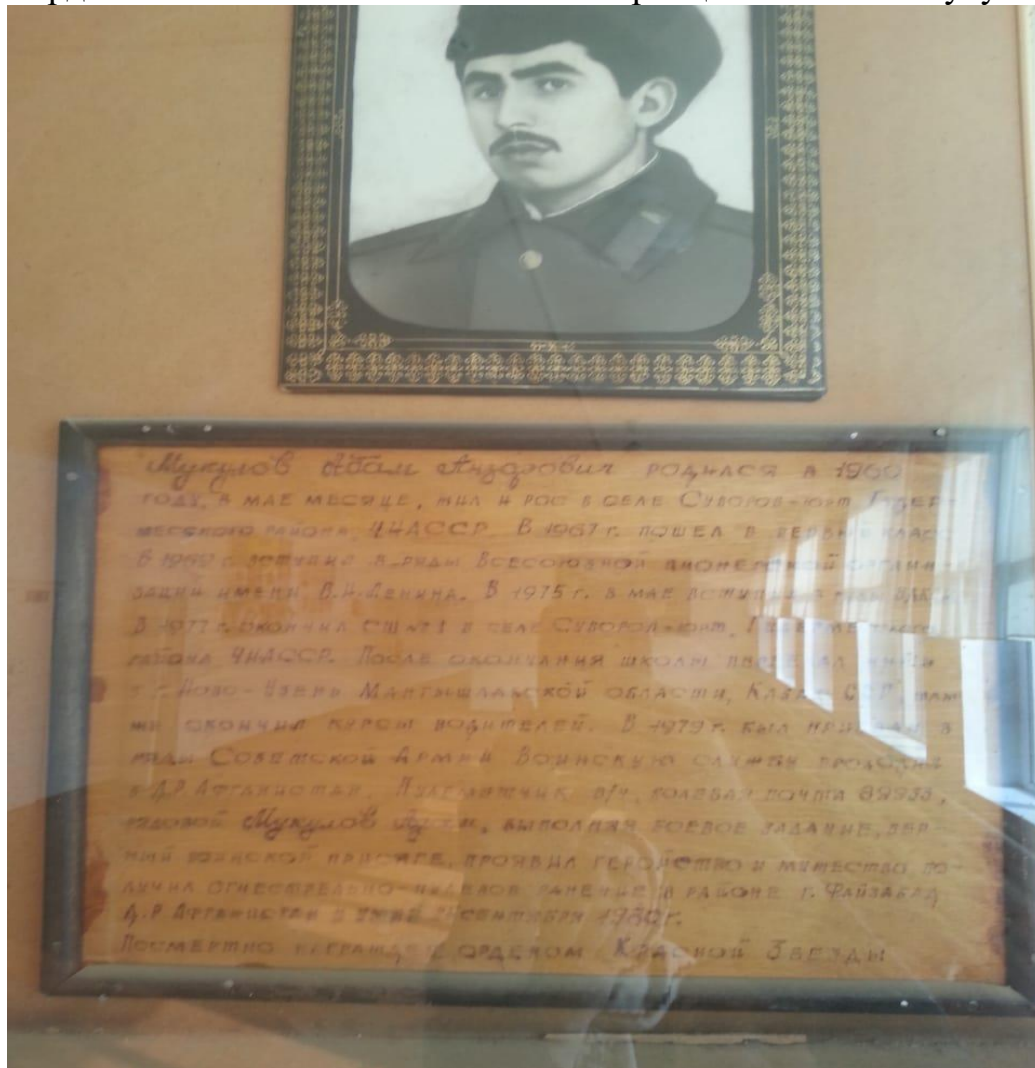 Мукулов Адам Анзорович родился в 1960
году, в мае месяце, жил и рос в селе Суворов-юрт Гудер-
месского района, ЧИАССР. В 1967 г. пошел в первый класс.
В 1969 г. вступил в ряды Всесоюзной пионерской органи-
зации имени В.И.Ленина. В 1975 г. в мае вступил в ряды
В 1977 г. окончил СШ №1 в селе Суворов-юрт, Гудермесского
района ЧИАССР. После окончания школы переехал жить
в г. Ново-Узень Мангышлакской области, Казах. ССР, там
же окончил курсы водителей. В 1979 г. был призван в
ряды Советской Армии Воинскую службу проходил
в Д.Р. Афганистан. Пулеметчик в/ч, полевая почта 89933,
рядовой Мукулов Адам, выполняя боевое задание, вер-
ный воинской присяге, проявил геройство и мужество по-
лучил огнестрельно-пулевое ранение в районе г. Файзабад
Д.Р. Афганистан и умер сентября 1980 г.
Посмертно награжден орденом Красной Звезды